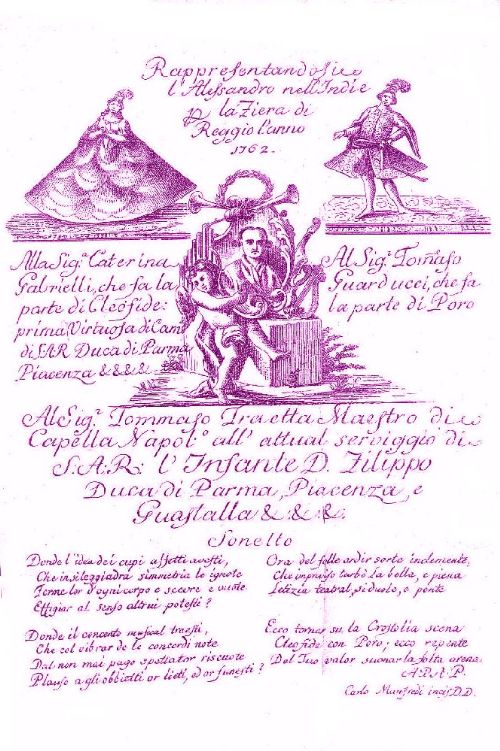 Rappresentandosi
l'Alessandro nell'Indie
la Fiera di
Reggio l'anno
1762.
Alla Sig.ª Caterina
Gabrielli, che fa la
parte di Cleofide:
prima Virtuosa di Cam
di S.A.R. Duca di Parma
Piacenza &&&&
Al Sig.ʳ Tomaso
Guarducci, che fa
la parte di Poro
Al Sig.ʳ Tommaso Traetta Maestro di
Capella Napol.º all' attual serviggio di
S.A.R. l'Infante D. Filippo
Duca di Parma, Piacenza, e
Guastalla &. &. &.
Sonetto
Donde l'idea dei cupi affetti avesti,
Che in sì leggiadra simmetria le ignote
Forme lor d'ogni corpo e scarse e vuote
Effigiar al senso altrui potesti?
Donde il concento musical traesti,
Che col vibrar de le concordi note
Dal non mai pago spettator riscuote
Plauso a gli obbietti or lieti, ed or funesti?
Ora del folle ardir sorte inclemente,
Che improviso turbò la bella, e piena
Letizia teatral, si duole, e pente
Ecco tornar su la Crostolia scena
Cleofide con Poro; ecco repente
Del Tuo valor suonar la folta arena.
Carlo Manfredi incis. D.D.